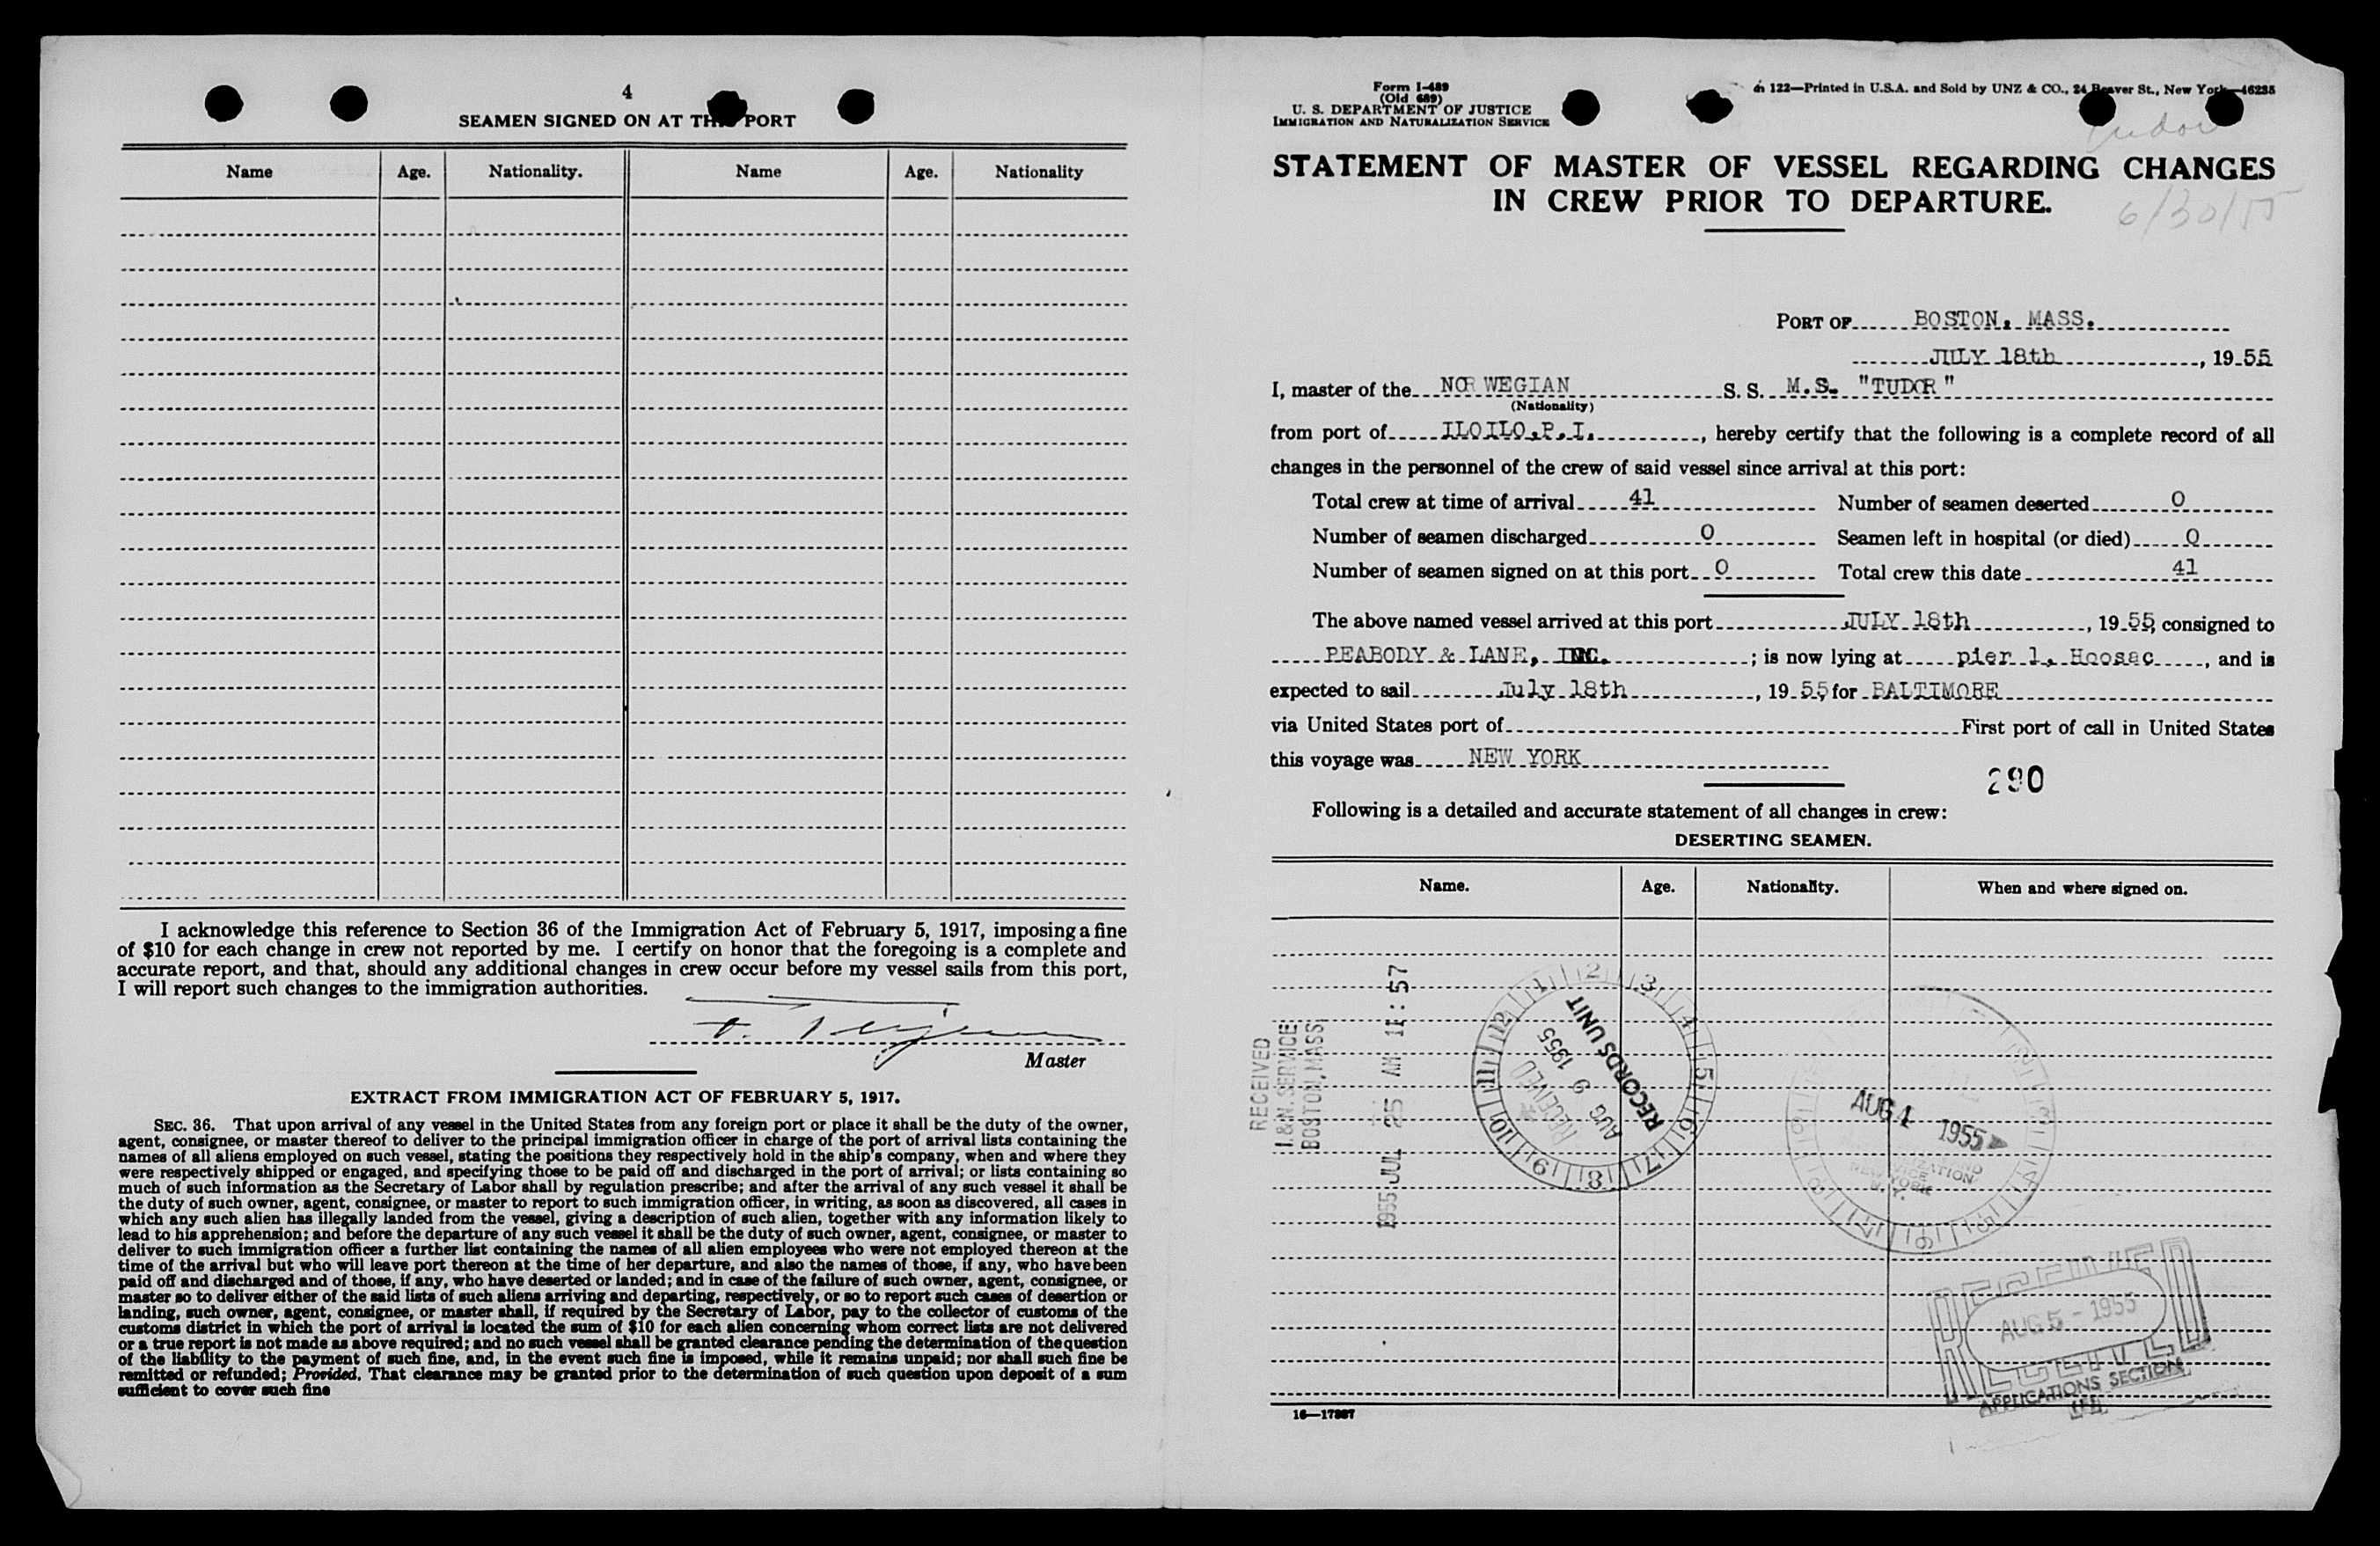 4
SEAMEN SIGNED ON AT THIS PORT
Name Age. Nationality. Name Age. Nationality
I acknowledge this reference to Section 36 of the Immigration Act of February 5, 1917, imposing a fine
of $10 for each change in crew not reported by me. I certify on honor that the foregoing is a complete and
accurate report, and that, should any additional changes in crew occur before my vessel sails from this port,
I will report such changes to the immigration authorities.
Master
EXTRACT FROM IMMIGRATION ACT OF FEBRUARY 5, 1917.
SEC. 36. That upon arrival of any vessel in the United States from any foreign port or place it shall be the duty of the owner,
agent, consignee, or master thereof to deliver to the principal immigration officer in charge of the port of arrival lists containing the
names of all aliens employed on such vessel, stating the positions they respectively hold in the ship's company, when and where they
were respectively shipped or engaged, and specifying those to be paid off and discharged in the port of arrival; or lists containing so
much of such information as the Secretary of Labor shall by regulation prescribe; and after the arrival of any such vessel it shall be
the duty of such owner, agent, consignee, or master to report to such immigration officer, in writing, as soon as discovered, all cases in
which any such alien has illegally landed from the vessel, giving a description of such alien, together with any information likely to
lead to his apprehension; and before the departure of any such vessel it shall be the duty of such owner, agent, consignee, or master to
deliver to such immigration officer a further list containing the names of all alien employees who were not employed thereon at the
time of the arrival but who will leave port thereon at the time of her departure, and also the names of those, if any, who have been
paid off and discharged and of those, if any, who have deserted or landed; and in case of the failure of such owner, agent, consignee, or
master so to deliver either of the said lists of such aliens arriving and departing, respectively, or so to report such cases of desertion or
landing, such owner, agent, consignee, or master shall, if required by the Secretary of Labor, pay to the collector of customs of the
customs district in which the port of arrival is located the sum of $10 for each alien concerning whom correct lists are not delivered
or a true report is not made as above required; and no such vessel shall be granted clearance pending the determination of the question
of the liability to the payment of such fine, and, in the event such fine is imposed, while it remains unpaid; nor shall such fine be
remitted or refunded; Provided, That clearance may be granted prior to the determination of such question upon deposit of a sum
sufficient to cover such fine
Form I-489
(Old 689)
U. S. DEPARTMENT OF JUSTICE
IMMIGRATION AND NATURALIZATION SERVICE
122—Printed in U.S.A. and Sold by UNZ & CO., 24 Beaver St., New York—46235
Tudor
STATEMENT OF MASTER OF VESSEL REGARDING CHANGES
IN CREW PRIOR TO DEPARTURE.
6/30/55
PORT OF BOSTON, MASS.
JULY 18th, 1955
I, master of the NORWEGIAN S. S. M.S. "TUDOR"
(Nationality)
from port of ILOILO,P.I., hereby certify that the following is a complete record of all
changes in the personnel of the crew of said vessel since arrival at this port:
Total crew at time of arrival 41 Number of seamen deserted 0
Number of seamen discharged 0 Seamen left in hospital (or died) 0
Number of seamen signed on at this port 0 Total crew this date 41
The above named vessel arrived at this port JULY 18th, 1955 consigned to
PEABODY & LANE, INC.; is now lying at pier 1, Hoosac, and is
expected to sail July 18th, 1955 for BALTIMORE
via United States port of First port of call in United States
this voyage was NEW YORK
290
Following is a detailed and accurate statement of all changes in crew:
DESERTING SEAMEN.
Name. Age. Nationality. When and where signed on.
RECEIVED
I.&N.SERVICE
BOSTON,MASS
1955 JUL 25 AM 11:57
1 2 3 4 5 6 7 8 9 10 11 12
RECEIVED
AUG 9 1955
RECORDS UNIT
AUG 4 1955
NEW YORK
N. Y.
RECEIVED
AUG 5 - 1955
APPLICATIONS SECTION
16—17887